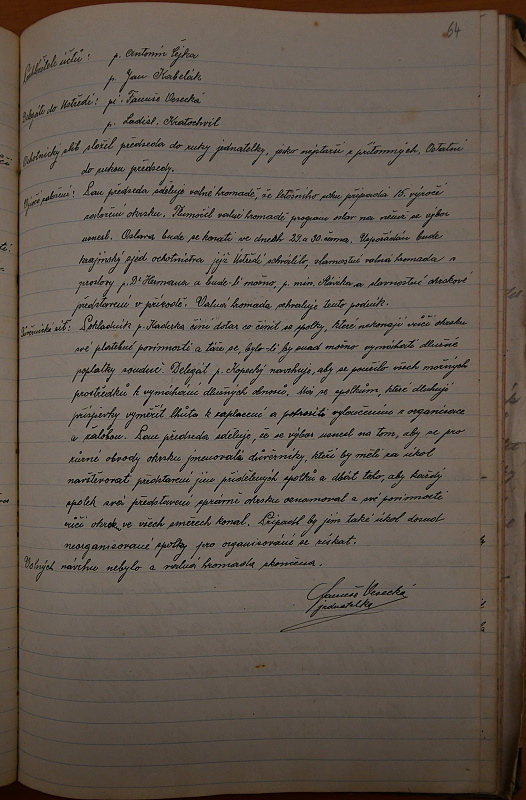 64
p. Antonín Čejka
p. Jan Kabelák
Delegáti do Ústředí: pí. Fanuše Vesecká
p. Ladisl. Kratochvíl
Ochotnický slib složil předseda do ruky jednatelky, jako nejstarší z přítomných. Ostatní
do rukou předsedy.
Pan předseda sděluje valné hromadě, že letošního roku připadá 15. výročí
založení okrsku. Tlumočil valné hromadě program oslav na němž se výbor
usnesl. Oslava bude se konati ve dnech 29. a 30. června. Uspořádán bude
krajinský sjezd ochotnictva jejž Ústředí schválilo, slavnostní valná hromada s
proslovy p. Dr. Hermana a bude-li možno, p. min. Slávika a slavnostní okrskové
představení v přírodě. Valná hromada schvaluje tento podnik.
Důvěrnická síť: Pokladník p. Kaderka činí dotaz co činit se spolky, které nekonají vůči okrsku
své platební povinnosti a táže se, bylo-li by snad možno vymáhati dlužné
poplatky soudně. Delegát p. Kopecký navrhuje, aby se použilo všech možných
prostředků k vymáhání dlužných obnosů. Má se spolkům, které dluhují
příspěvky vyměřit lhůta k zaplacení a pohrozit vyloučením z organisace
a žalobou. Pan předseda sděluje, že se výbor usnesl na tom, aby se pro
různé obvody okrsku jmenovali důvěrníky, kteří by měli za úkol
navštěvovat představení jim přidělených spolků a dbát toho, aby každý
spolek svá představení správně okrsku oznamoval a své povinnosti
vůči okrsku ve všech směrech konal. Připadl by jim také úkol dosud
neorganisované spolky pro organisování se získat.
Volných návrhů nebylo a valná hromada skončena.
Fanuše Vesecká
jednatelka